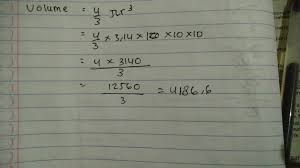 Volume = 4/3 πr³
= 4/3 × 3,14 × 10 × 10 × 10
= 4 × 3140 / 3
= 12560 / 3 = 4186,6